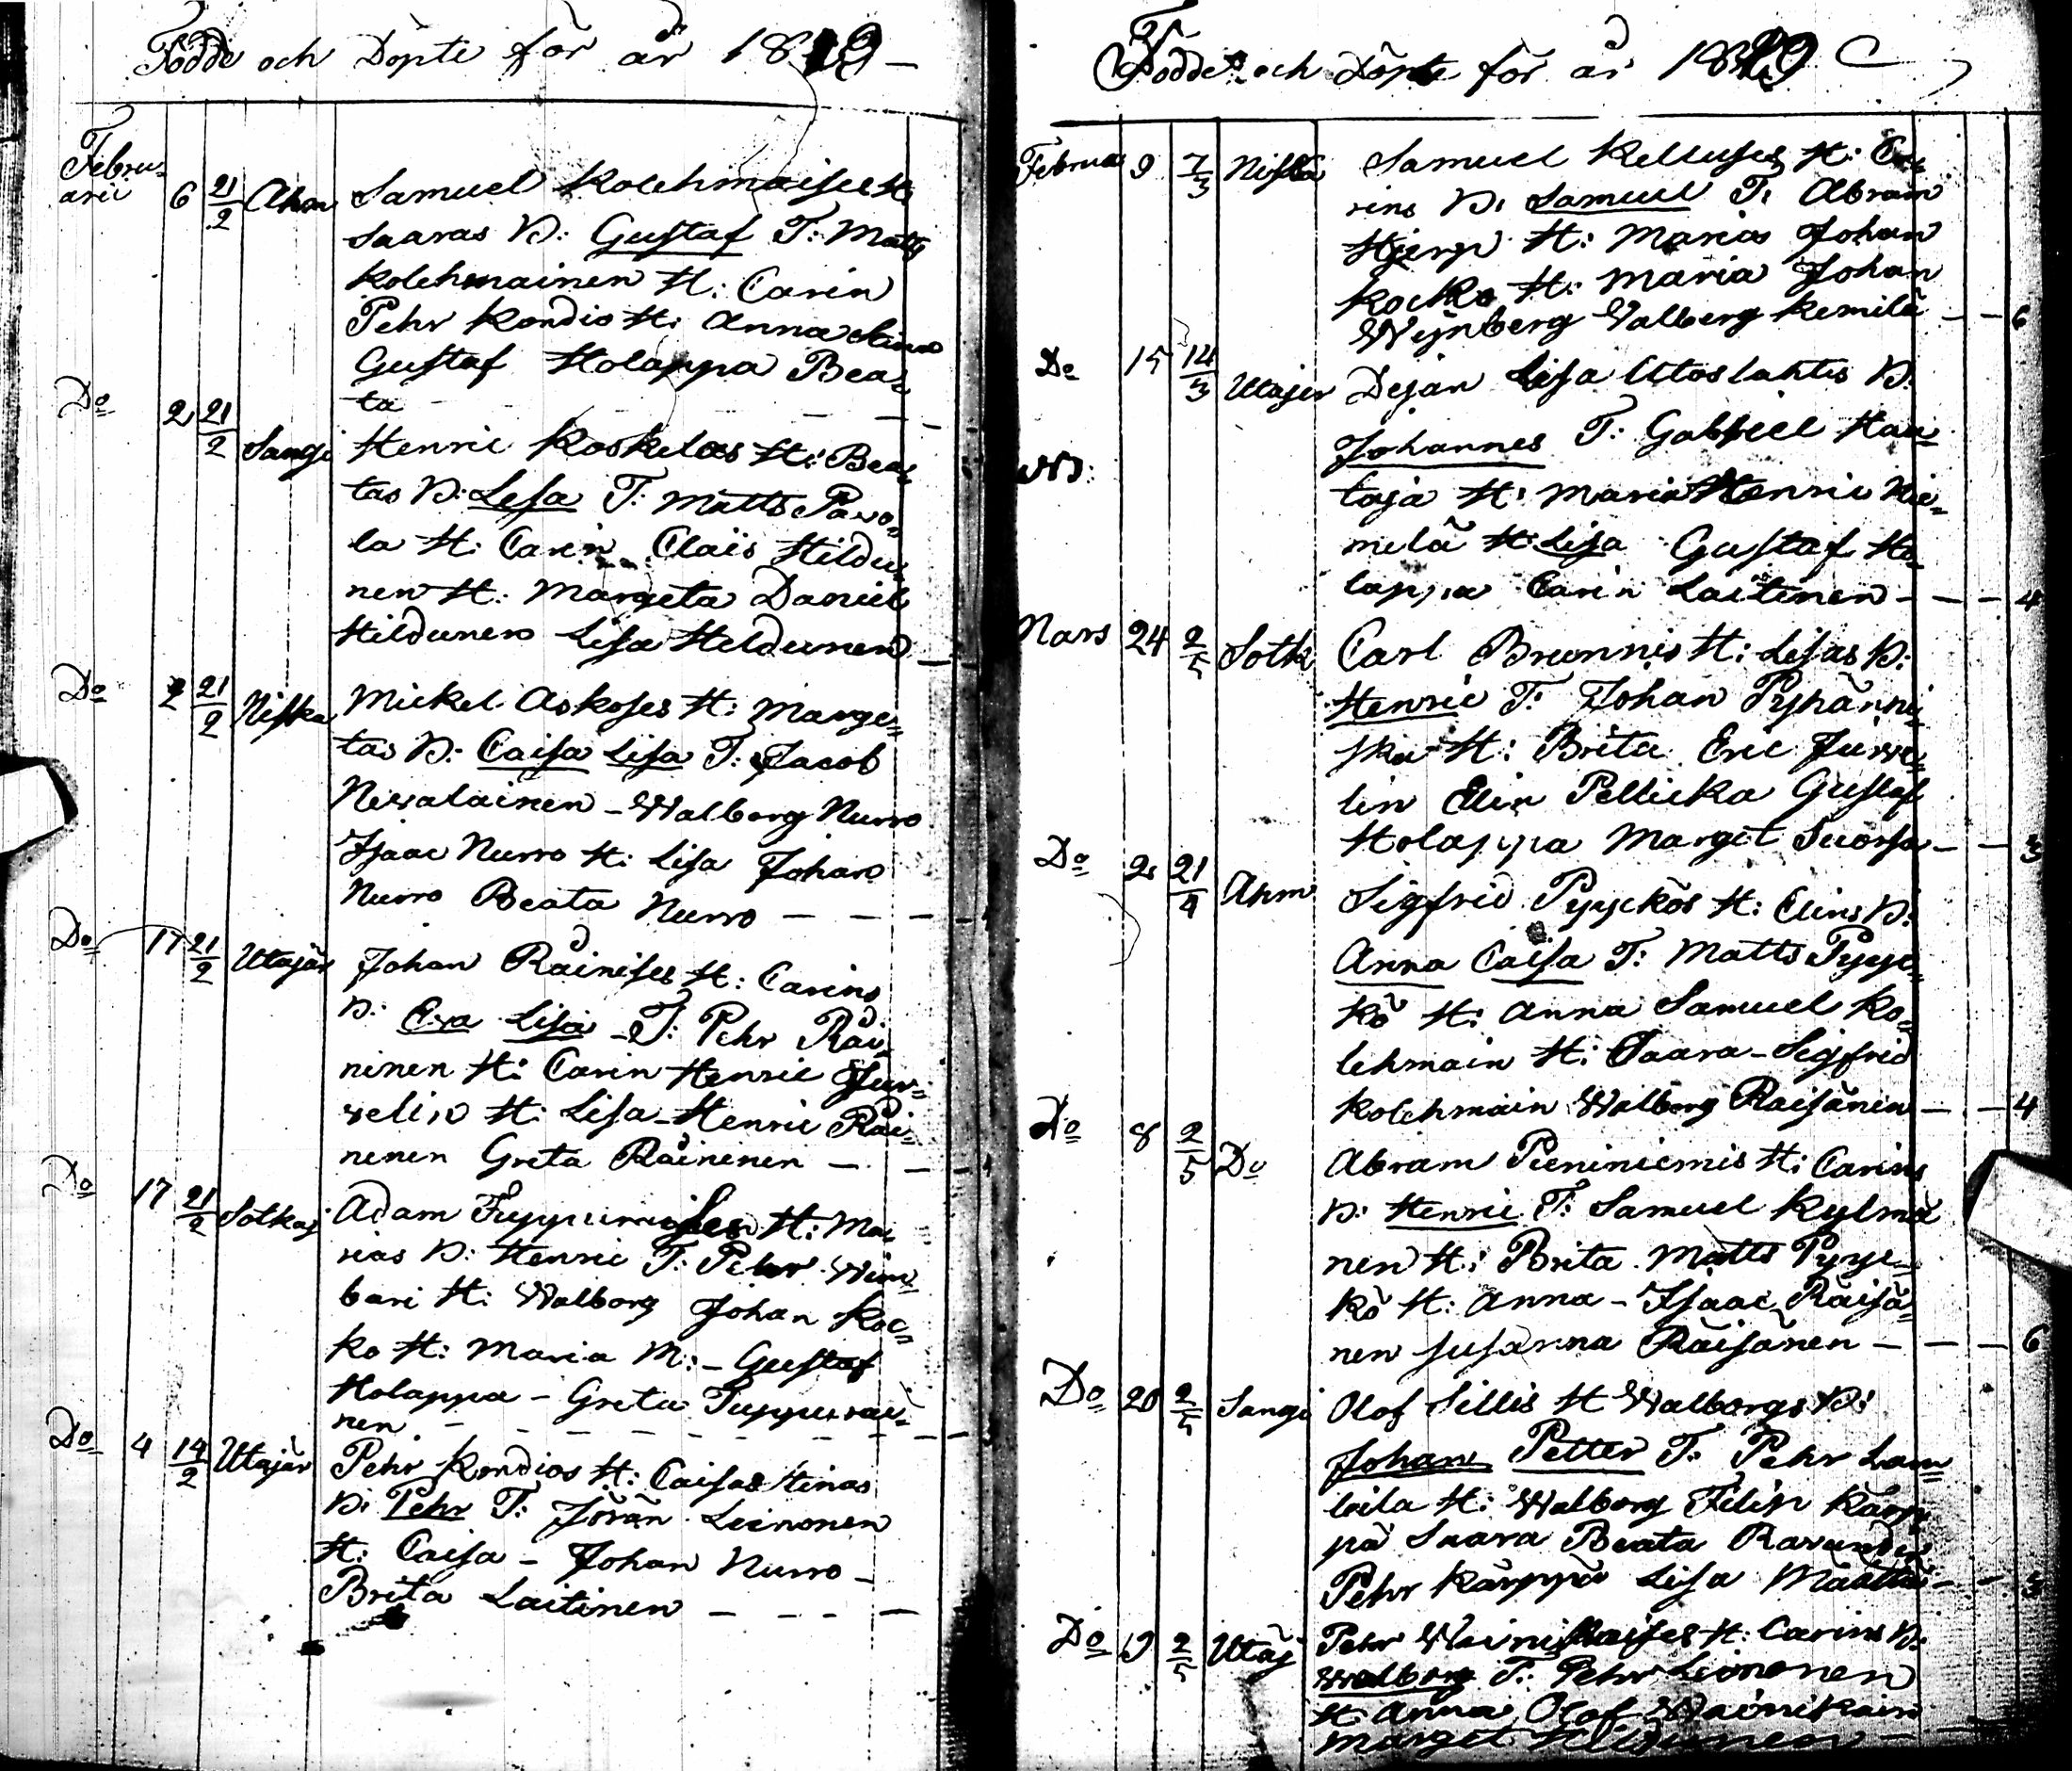 Födde och Döpte för år 1819 -
Febru-
arii 6 21/2 Ahm Samuel Kolehmaises H:
Saaras B: Gustaf T: Matts
Kolehmainen H: Carin
Pehr Kondio H: Anna Stina
Gustaf Holappa Bea-
ta - - - - -
Do 2 21/2 Sangi Henric Koskelas H: Bea-
tas B: Lisa T: Matts Pavo-
la H: Carin Clais Hildu-
nen H: Margeta Daniel
Hildunen Lisa Heldunen -
Do 2 21/2 Niska Mickel Askoses H: Marge-
tas B: Caisa Lisa T: Jacob
Nevalainen - Walborg Nurro
Isaac Nurro H: Lisa Johan
Nurro Beata Nurro - - - -
Do 17 21/2 Utajär Johan Räinises H: Carins
B: Eva Lisa - T: Pehr Räi-
ninen H: Carin Henric Jur-
velin H: Lisa - Henric Räi-
nenen Greta Räininen - - -
Do 17 21/2 Sotkaj Adam H: Ma-
rias B: Henric T: Pehr
bari H: Walborg Johan Koc-
ko H: Maria M: - Gustaf
Holappa - Greta Tuppurai-
nen - - - - - -
Do 4 14/2 Utajär Pehr Kondios H: Caisas Stinas
B: Pehr T: Jöran Leinonen
H: Caisa - Johan Nurro -
Brita Laitinen - - - -
Födde och Döpte för år 1819
Februa 9 7/3 Niska Samuel Kelluses H: Ca-
rins B: Samuel T: Abram
Hjerp H: Marias Johan
Kocko H: Maria Johan
Wynberg Walberg Kemilä - - 6
Do 15 14/3 Utajer Dejan Lisa Utoslahtis B:
Johannes T: Gabriel Hau-
taja H: Maria Henric Nie-
melä H: Lisa Gustaf Ho-
lappa Carin Laitinen - - - 4
Mars 24 2/5 Sotk Carl Brunnis H: Lisas B:
Henric T: Johan Pyhänni-
ska H: Brita Eric Jurve-
lin Elin Pellicka Gustaf
Holappa Marget Suorsa - - 3
Do 2 21/4 Ahm Sigfrid Pyyckös H: Elins B:
Anna Caisa T: Matts Pyyc-
kö H: Anna Samuel Ko-
lehmain H: Saara - Sigfrid
Kolehmain Walborg Raisänin - - 4
Do 8 2/5 Do Abram Pieniniemis H: Carins
B: Henric T: Samuel Kylmä
nen H: Brita Matts Pyyc-
kö H: Anna - Isaac Räisä-
nen Susanna Räisänen - - - 6
Do 20 2/5 Sangi Olof Sillis H Walborgs B:
Johan Petter T: Pehr Lam-
laila H: Walborg Filip Kärp-
pä Saara Beata Ravander
Pehr Kärppä Lisa Määttä - - 5
Do 19 2/5 Utäj Pehr H: Carins B:
Walborg T: Pehr Leinonen
H: Anna Olof Wainikain
Marget Hildunen -